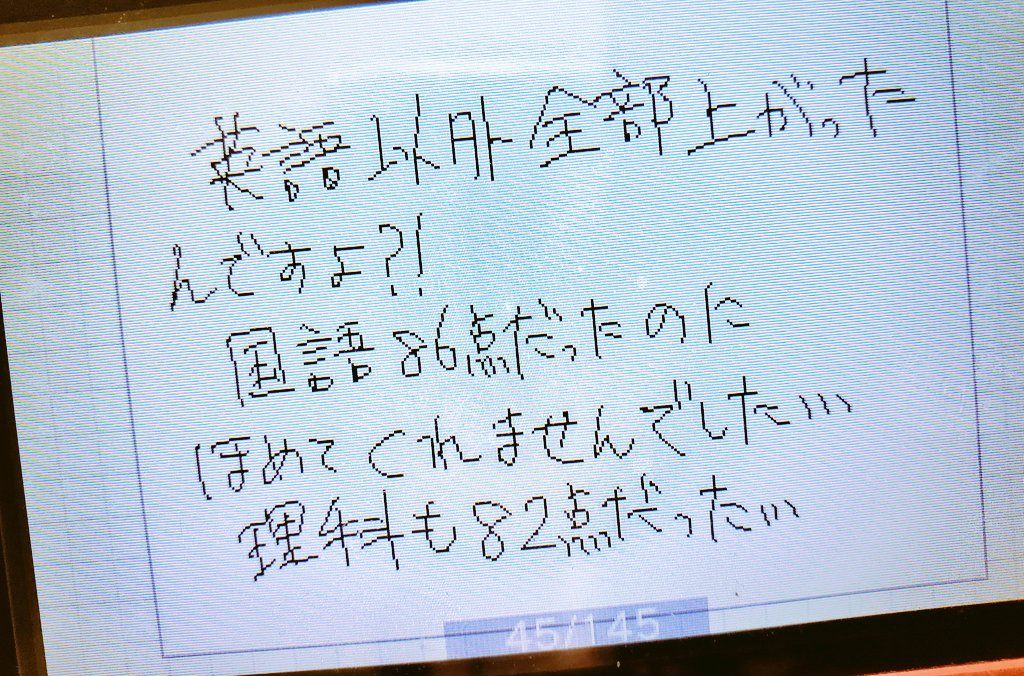 英語以外全部上がった
んですよ?!
国語86点だったのに
ほめてくれませんでした…
理科も82点だった…
45/145